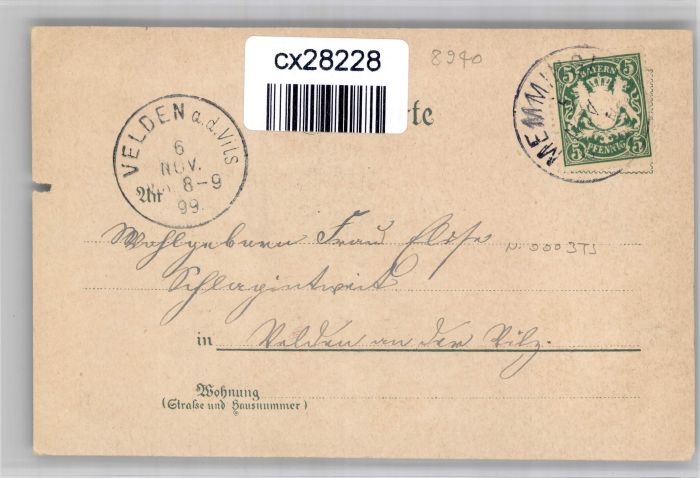 cx28228
8940
5 BAYERN 5
5 PFENNIG 5
MEMMI
VELDEN a.d. Vils
6
NOV.
8-9
99.
An
rte
Wohlgeboren Frau
N. 0003TS
Schlagintweit
in Velden an der Vilz.
Wohnung
(Straße und Hausnummer)